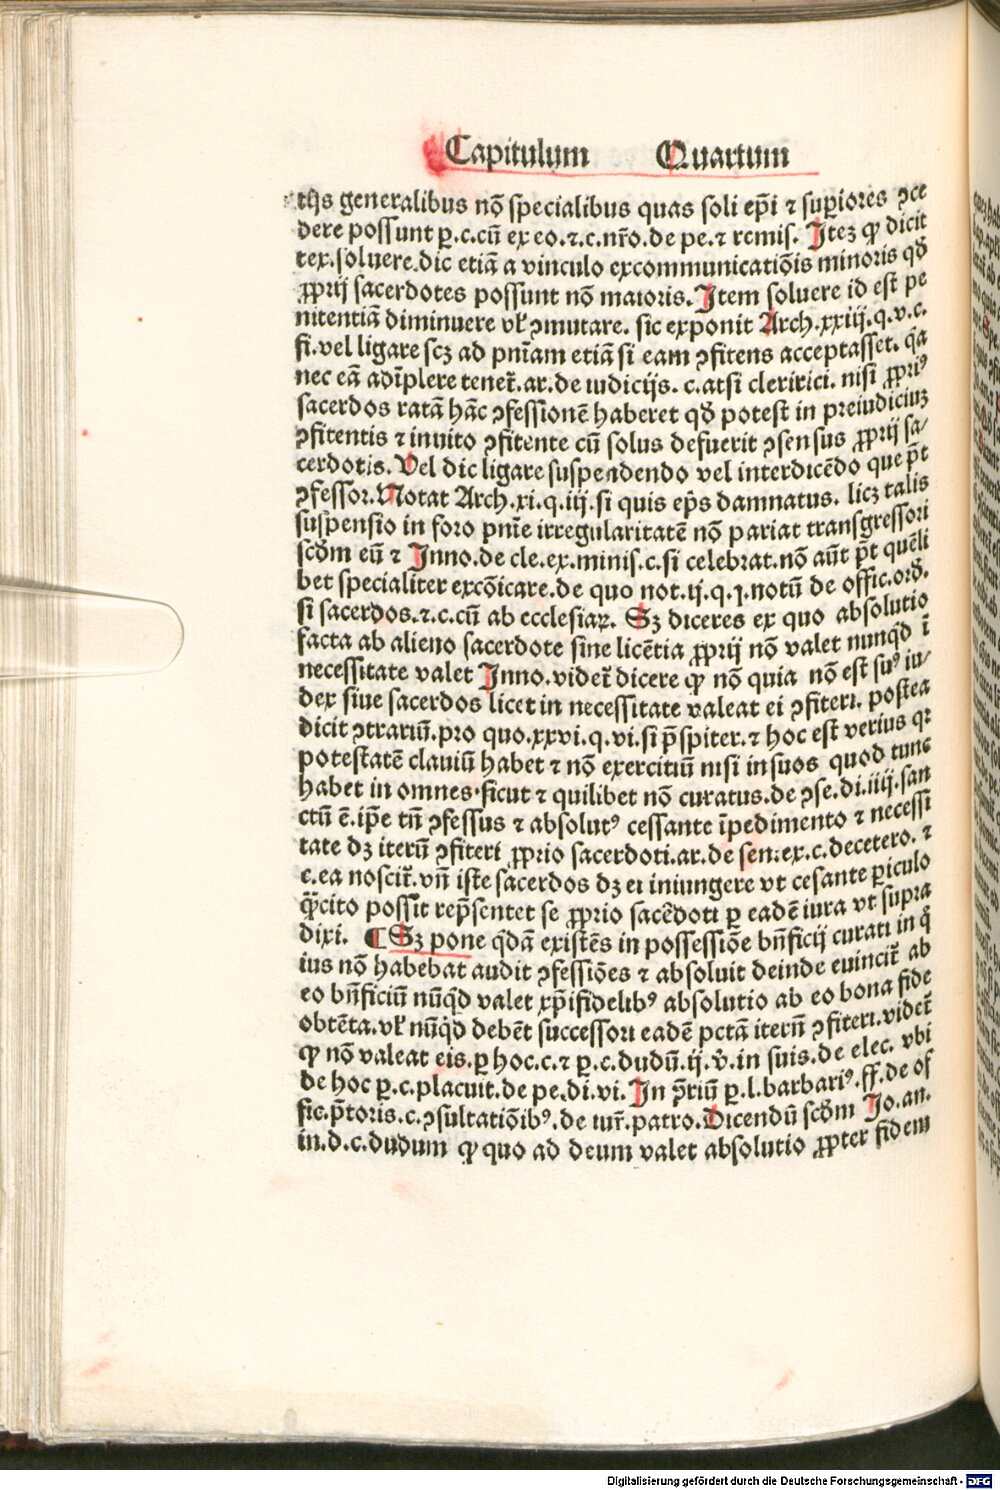 Capitulum Quartum
tijs generalibus nō specialibus quas soli ep̄i ⁊ superiores ꝯce
dere possunt ꝑ.c.cū ex eo.⁊.c.nr̄o.de pe.⁊ remis. Iteꝫ ꝙ dicit
tex.soluere.dic etiā a vinculo excommunicatiōis minoris qd̄
ꝓprij sacerdotes possunt nō maioris. Item soluere id est pe
nitentiā diminuere vl̓ ꝯmutare. sic exponit Arch.xxiij.q.v.c.
fi.vel ligare scꝫ ad pn̄iam etiā si eam ꝯfitens acceptasset. q̄a
nec eā adīplere tenet̄.ar.de iudicijs. c.atsi cleririci. nisi ꝓpriꝰ
sacerdos ratā hāc ꝯfessionē haberet qd̄ potest in preiudiciuꝫ
ꝯfitentis ⁊ inuito ꝯfitente cū solus defuerit ꝯsensus ꝓprij sa/
cerdotis. Vel dic ligare suspendendo vel interdicēdo que p̄t
ꝯfessor. Notat Arch.xi.q.iij.si quis ep̄s damnatus. licꝫ talis
suspensio in foro pn̄ie irregularitatē nō pariat transgressori
scd̄m eū ⁊ Inno.de cle.ex.minis.c.si celebrat.nō aūt p̄t quēli
bet specialiter excōicare.de quo not.ij.q.ꝭ.notū de offic.ord̄.
si sacerdos.⁊.c.cū ab ecclesiaꝝ. Sꝫ diceres ex quo absolutio
facta ab alieno sacerdote sine licētia ꝓprij nō valet nunqd̄ ī
necessitate valet Inno.videt̄ dicere ꝙ nō quia nō est suꝰ iu/
dex siue sacerdos licet in necessitate valeat ei ꝯfiteri. postea
dicit ꝯtrariū.pro quo.xxvi.q.vi.si p̄sbiter.⁊ hoc est verius qꝛ
potestatē clauiū habet ⁊ nō exercitiū nisi in suos quod tunc
habet in omnes.sicut ⁊ quilibet nō curatus.de ꝯse.di.iiij.san
ctū ē.ip̄e tn̄ ꝯfessus ⁊ absolutꝰ cessante īpedimento ⁊ necessi
tate dꝫ iterū ꝯfiteri ꝓprio sacerdoti.ar.de sen.ex.c.decetero. ⁊
c.ea noscit̄.vn̄ iste sacerdos dꝫ ei iniungere vt cesante periculo
q̄cito possit rep̄sentet se ꝓprio sacēdoti ꝑ eadē iura vt supra
dixi. ¶ Sꝫ pone qd̄ā existēs in possessiōe bn̄ficij curati in q̄
ius nō habebat audit ꝯfessiōes ⁊ absoluit deinde euincit̄ ab
eo bn̄ficiū nūqd̄ valet xp̄ifidelibꝰ absolutio ab eo bona fide
obtēta.vl̓ nūqd̄ debēt successori eadē pctā iterū ꝯfiteri.videt̄
ꝙ nō valeat eis.ꝑ hoc.c.⁊ ꝑ.c.dudū.ij.v̄.in suis.de elec. vbi
de hoc ꝑ.c.placuit.de pe.di.vi. In ꝯ̄riū ꝑ.l.barbariꝰ.ff.de of
fic.p̄toris.c.ꝯsultatiōibꝰ.de iur̄.patro. Dicendū scd̄m Io.an.
in.d.c.dudum ꝙ quo ad deum valet absolutio ꝓpter fidem
Digitalisierung gefördert durch die Deutsche Forschungsgemeinschaft - DFG